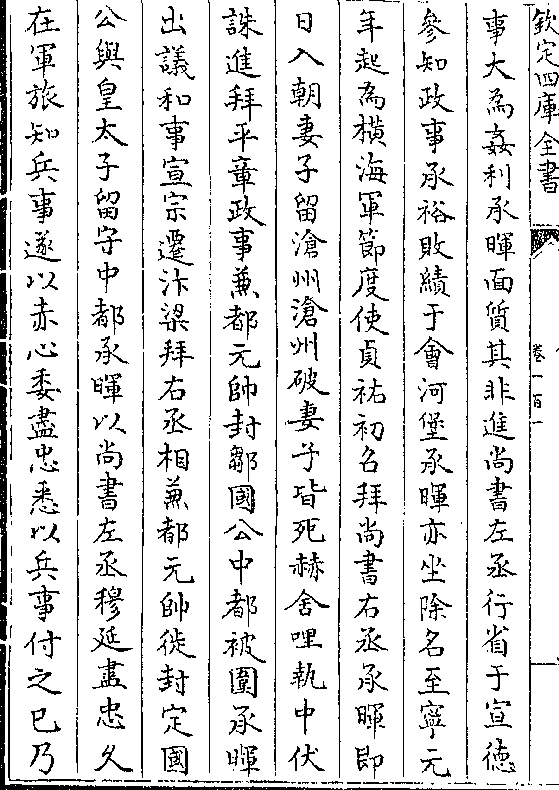 欽定四庫全書
卷一百一
事大為姦利承暉面質其非進尚書左丞行省于宣徳
參知政事承裕敗績于會河堡承暉亦坐除名至寧元
年起為橫海軍節度使貞祐初召拜尚書右丞承暉即
日入朝妻子留滄州滄州破妻子皆死赫舍哩執中伏
誅進拜平章政事兼都元帥封鄒國公中都被圍承暉
出議和事宣宗遷汴梁拜右丞相兼都元帥徙封定國
公與皇太子留守中都承暉以尚書左丞穆延盡忠久
在軍旅知兵事遂以赤心委盡忠悉以兵事付之已乃